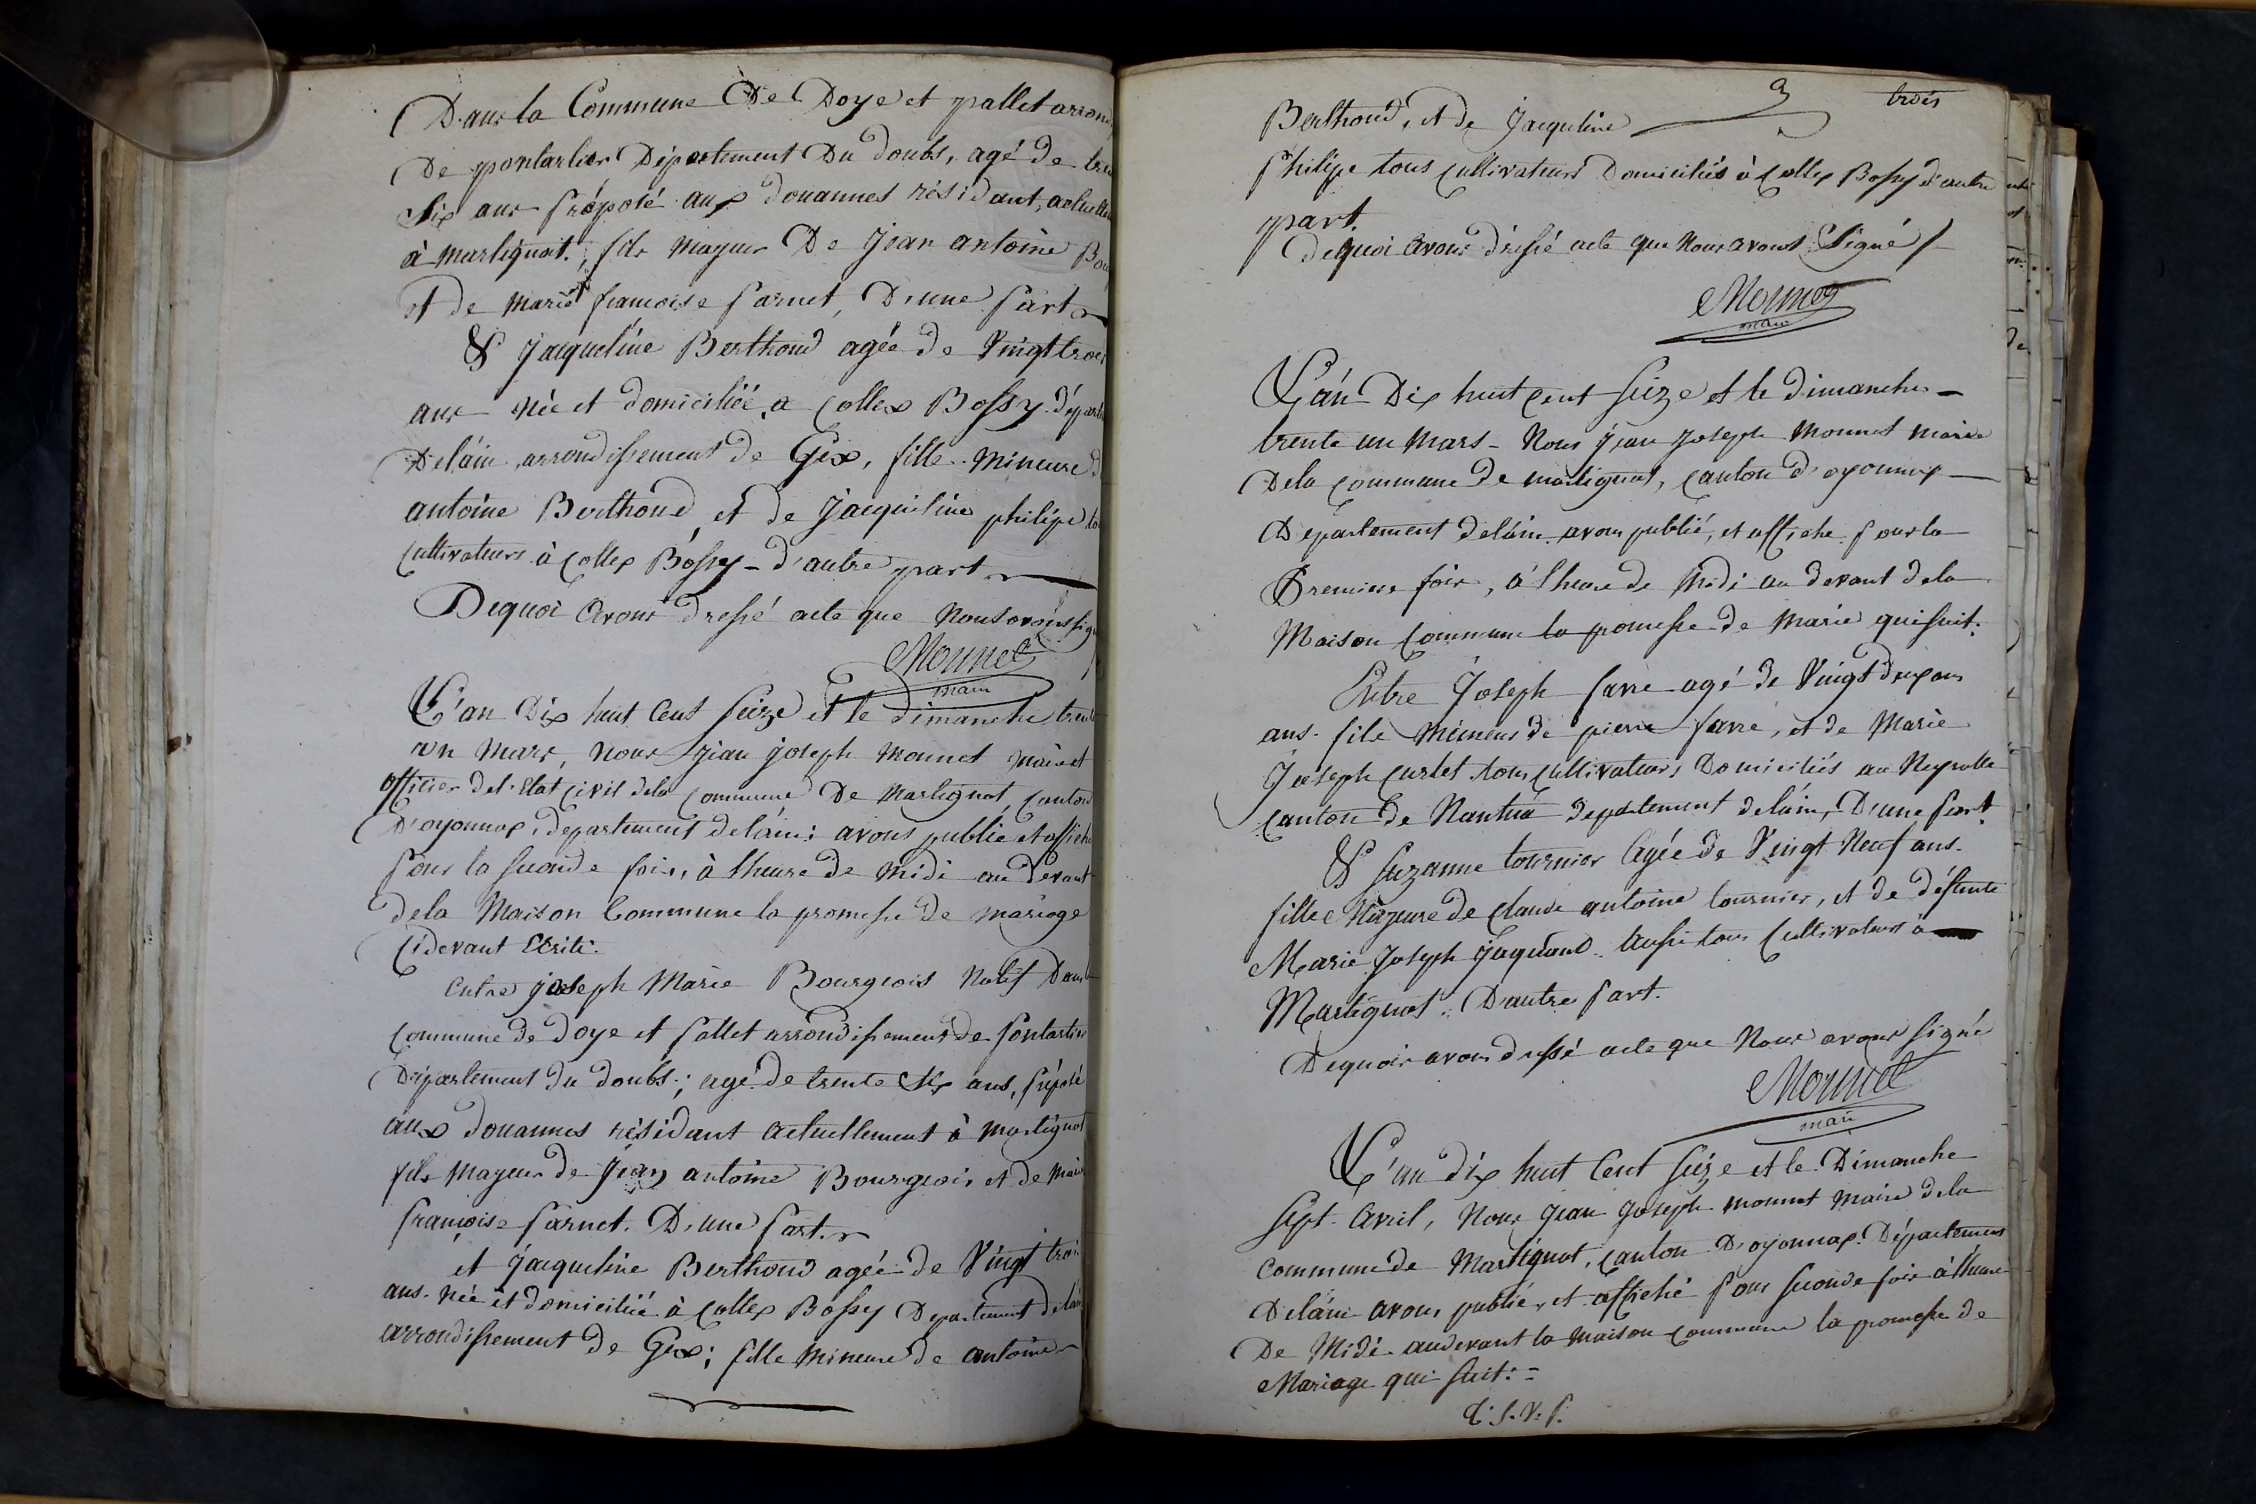 Dans la Commune De Doye et pallet arron
De pontarlier Département Du doubs, agé de tre
Six ans préposé aux douannes résidant, actuelle
à martignat, fils mayeur De Jean antoine Bou
et de marie francoise parnet, D'une part
& Jacqueline Berthoud agée de Vingt trois
ans née et domiciliée a Collex Bossy départ
Delain arrondissement de Gex, fille mineure d
antoine Berthoud et de Jacquiline philipe to
Cultivateurs à Collex Bossy - d'autre part
Dequoi avons dressé acte que nous avons sig
Monnet
maire
L'an Dix huit Cent seize et le dimanche trente
un mars, nous Jean joseph monnet maire et
officier del'Etat Civil dela Commune De Martignat Canton
D'oyonnax, département delain: avons publié et affiché
pour la seconde fois, à lheure de midi au devant
dela Maison Commune la promesse de mariage
Cidevant Ecrite.
Entre joseph Marie Bourgeois natif Dans
Commune de Doye et pallet arrondissement de pontarlier
Département du doubs; agé de trente six ans, préposé
aux douannes résidant actuellement à martignat
fils mayeur de Jean antoine Bourgeois et de marie
françoise parnet. D'une part.
et Jacqueline Berthoud agée de Vingt trois
ans. née et domiciliée à Collex Bossy Departement delain
arrondissement de Gex; fille mineure de antoine
3 trois
Berthoud, et de Jacquline
philipe tous Cultivateurs Domiciliés à Collex Bossy d'autre
part.
Dequoi avons dressé acte que nous avons Signé /
Monnet
maire
L'an Dix huit Cent Seize et le dimanche
trente un Mars - Nous Jean Joseph Monnet maire
Dela Commune De martignat, Canton d'oyonnax
Département delain avons publié, et affiché pour la
Premiere fois, à lheure de Midi au devant dela
Maison Commune la promesse de marié qui suit:
Entre Joseph favre agé de Vingt deux ans
ans. fils Mineur de pierre favre, et de Marie
Joseph Curlet tous Cultivateurs Domiciliés au Neyrolle
Canton de Nantua departement delain, D'une part.
& Suzanne tournier agée de Vingt Neuf ans.
fille Majeure de Claude antoine tournier, et de défunte
Marie Joseph Jaquand. aussi tous Cultivateurs à
Martignat. D'autre part.
Dequoi avons dressé acte que Nous avons signé
Monnet
maire
L'an dix huit Cent seize et le Dimanche
sept Avril, Nous Jean Joseph monnet maire dela
Commune de Martignat, Canton D'oyonnax. Département
Delain avons publié, et affiché pour seconde fois à lheure
De Midi audevant la maison Commune la promesse de
Mariage qui suit: =
T. S. V. P.